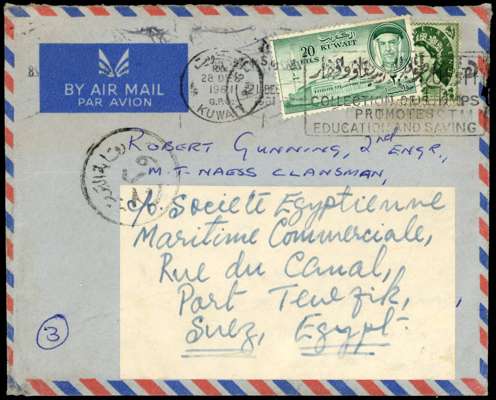 BY AIR MAIL
PAR AVION
28 DE
1961
G.P.O.
KUWAIT
20
KUWAIT
COLLECTION OF STAMPS
PROMOTES
EDUCATION AND SAVING
ROBERT GUNNING, 2nd ENGR.,
M.T. NAESS CLANSMAN,
c/o Societé Egyptienne
Maritime Commerciale,
Rue du Canal,
Port Tewfik,
Suez, Egypt.
3